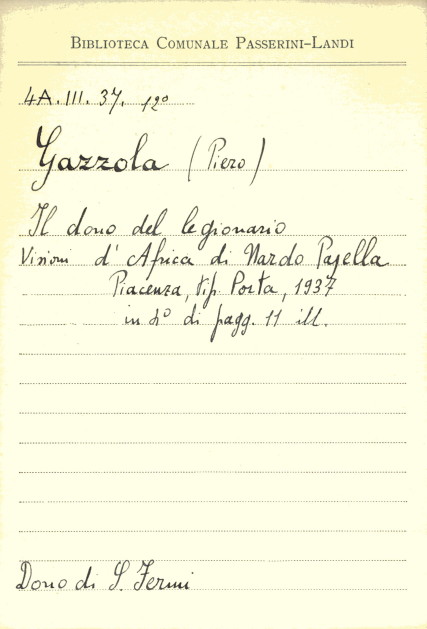 BIBLIOTECA COMUNALE PASSERINI-LANDI
4A.III.37. 12º
Gazzola (Piero)
Il dono del legionario
Visioni d'Africa di Nardo Pajella
Piacenza, tip. Porta, 1937
in 4º di pagg. 11 ill.
Dono di S. Fermi